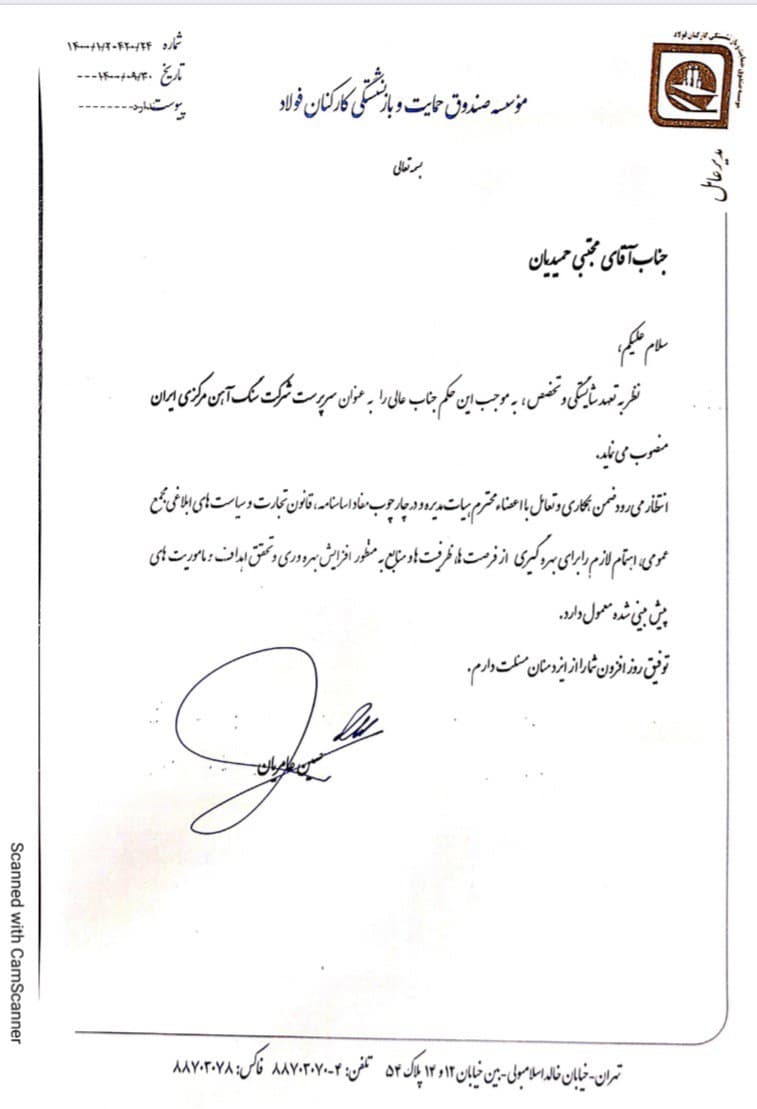 موسسه صندوق حمایت و بازنشستگی کارکنان فولاد
شماره ۱۴۰۰/۱/۲-۴۲۰/۲۴
تاریخ ۱۴۰۰/۰۹/۳۰
پیوست ندارد
مؤسسه صندوق حمایت و بازنشستگی کارکنان فولاد
بسمه تعالی
مدیر عامل
جناب آقای مجتبی حمیدیان
سلام علیکم،
نظر به تعهد شایستگی و تخصص، به موجب این حکم جناب عالی را به عنوان سرپرست شرکت سنگ آهن مرکزی ایران
منصوب می نماید.
انتظار می رود ضمن همکاری و تعامل با اعضاء محترم هیات مدیره و در چارچوب مفاد اساسنامه، قانون تجارت و سیاست های ابلاغی مجمع
عمومی، اهتمام لازم را برای بهره گیری از فرصت ها، ظرفیت ها و منابع به منظور افزایش بهره وری و تحقق اهداف و ماموریت های
پیش بینی شده معمول دارد.
توفیق روز افزون شما را از ایزد منان مسئلت دارم.
حسین عامریان
تهران-خیابان خالد اسلامبولی-بین خیابان ۱۲ و ۱۴ پلاک ۵۴ تلفن: ۴-۸۸۷۰۳۰۷۰ فاکس: ۸۸۷۰۳۰۷۸
Scanned with CamScanner